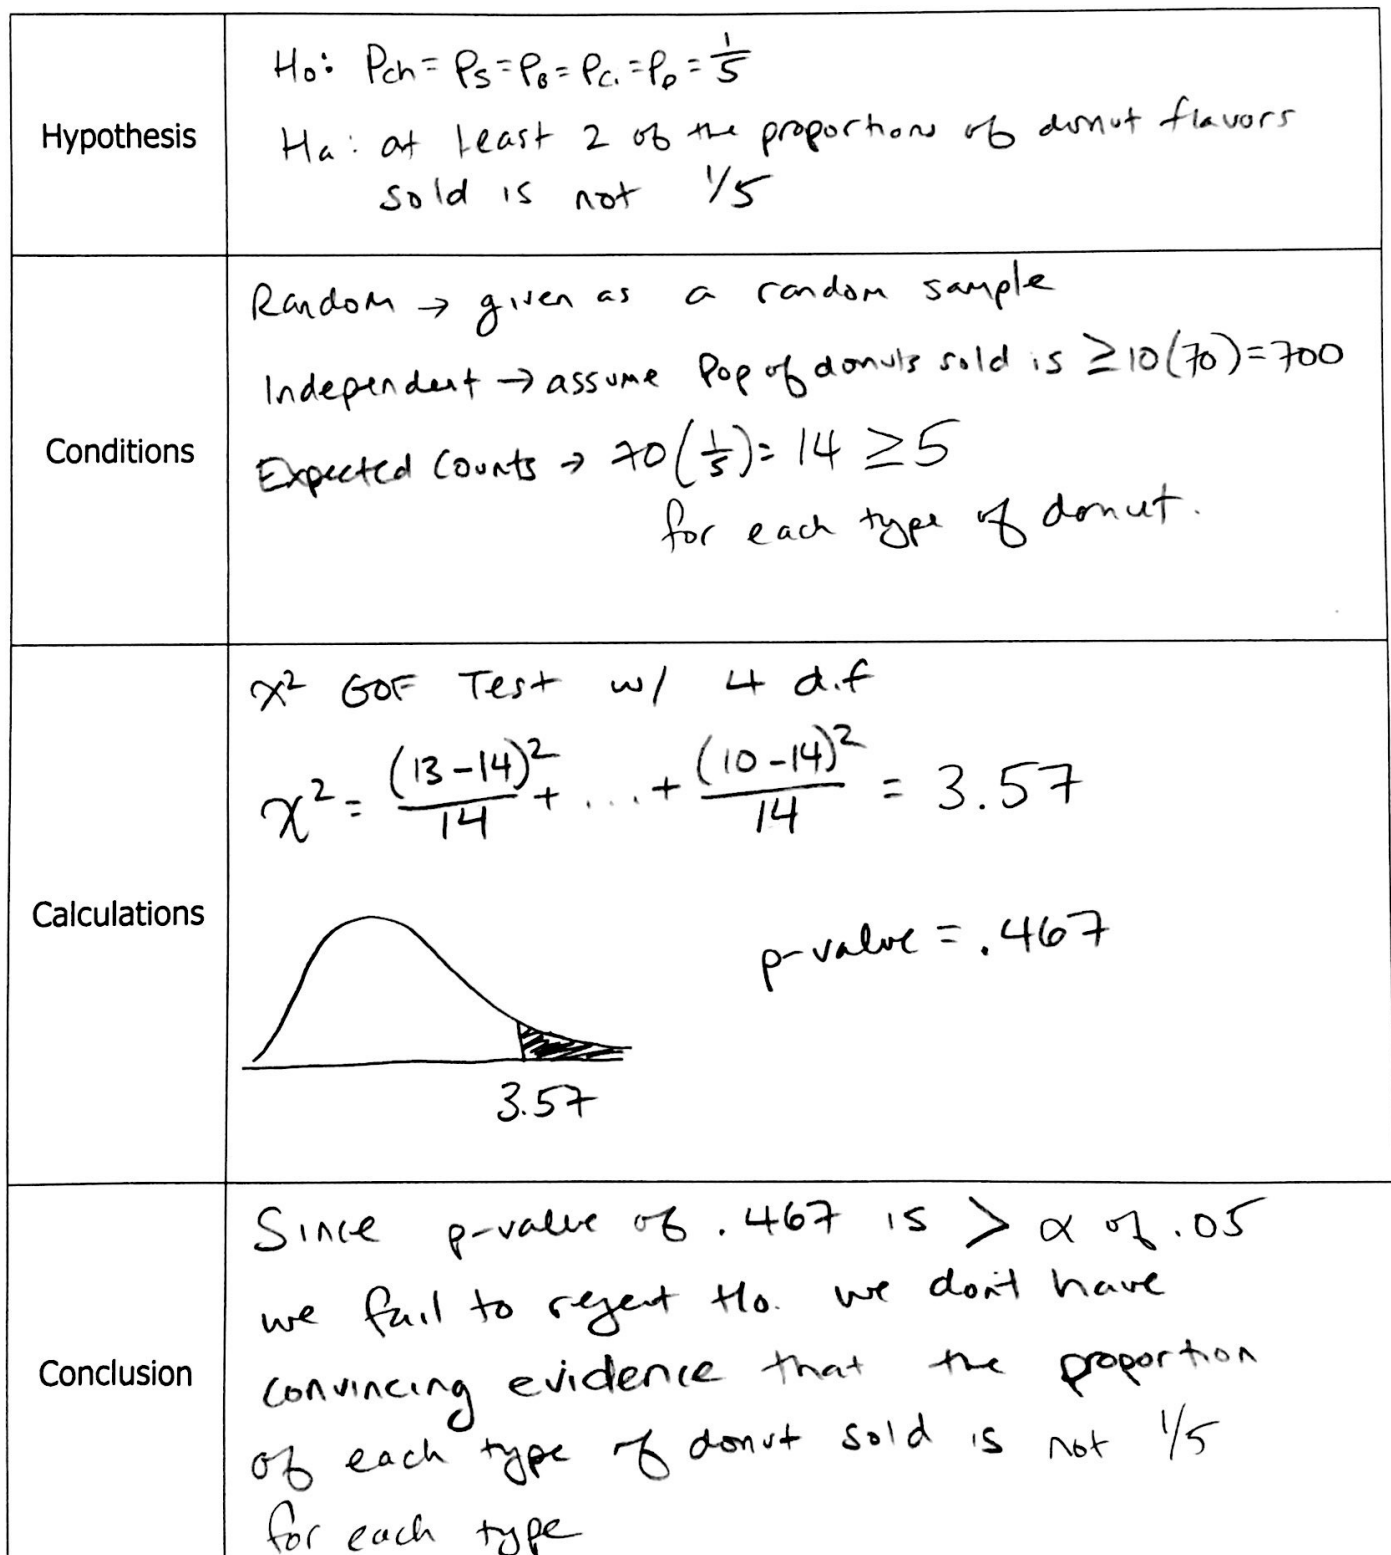 Hypothesis
H₀: Pch = Ps = PB = PC. = PD = 1/5
Ha: at least 2 of the proportions of donut flavors
sold is not 1/5
Conditions
Random → given as a random sample
Independent → assume Pop of donuts sold is ≥ 10(70) = 700
Expected Counts → 70(1/5) = 14 ≥ 5
for each type of donut.
Calculations
χ² GOF Test w/ 4 d.f
χ² = (13-14)²/14 + ... + (10-14)²/14 = 3.57
p-value = .467
3.57
Conclusion
Since p-value of .467 is > α of .05
we fail to reject Ho. we don't have
convincing evidence that the proportion
of each type of donut sold is not 1/5
for each type